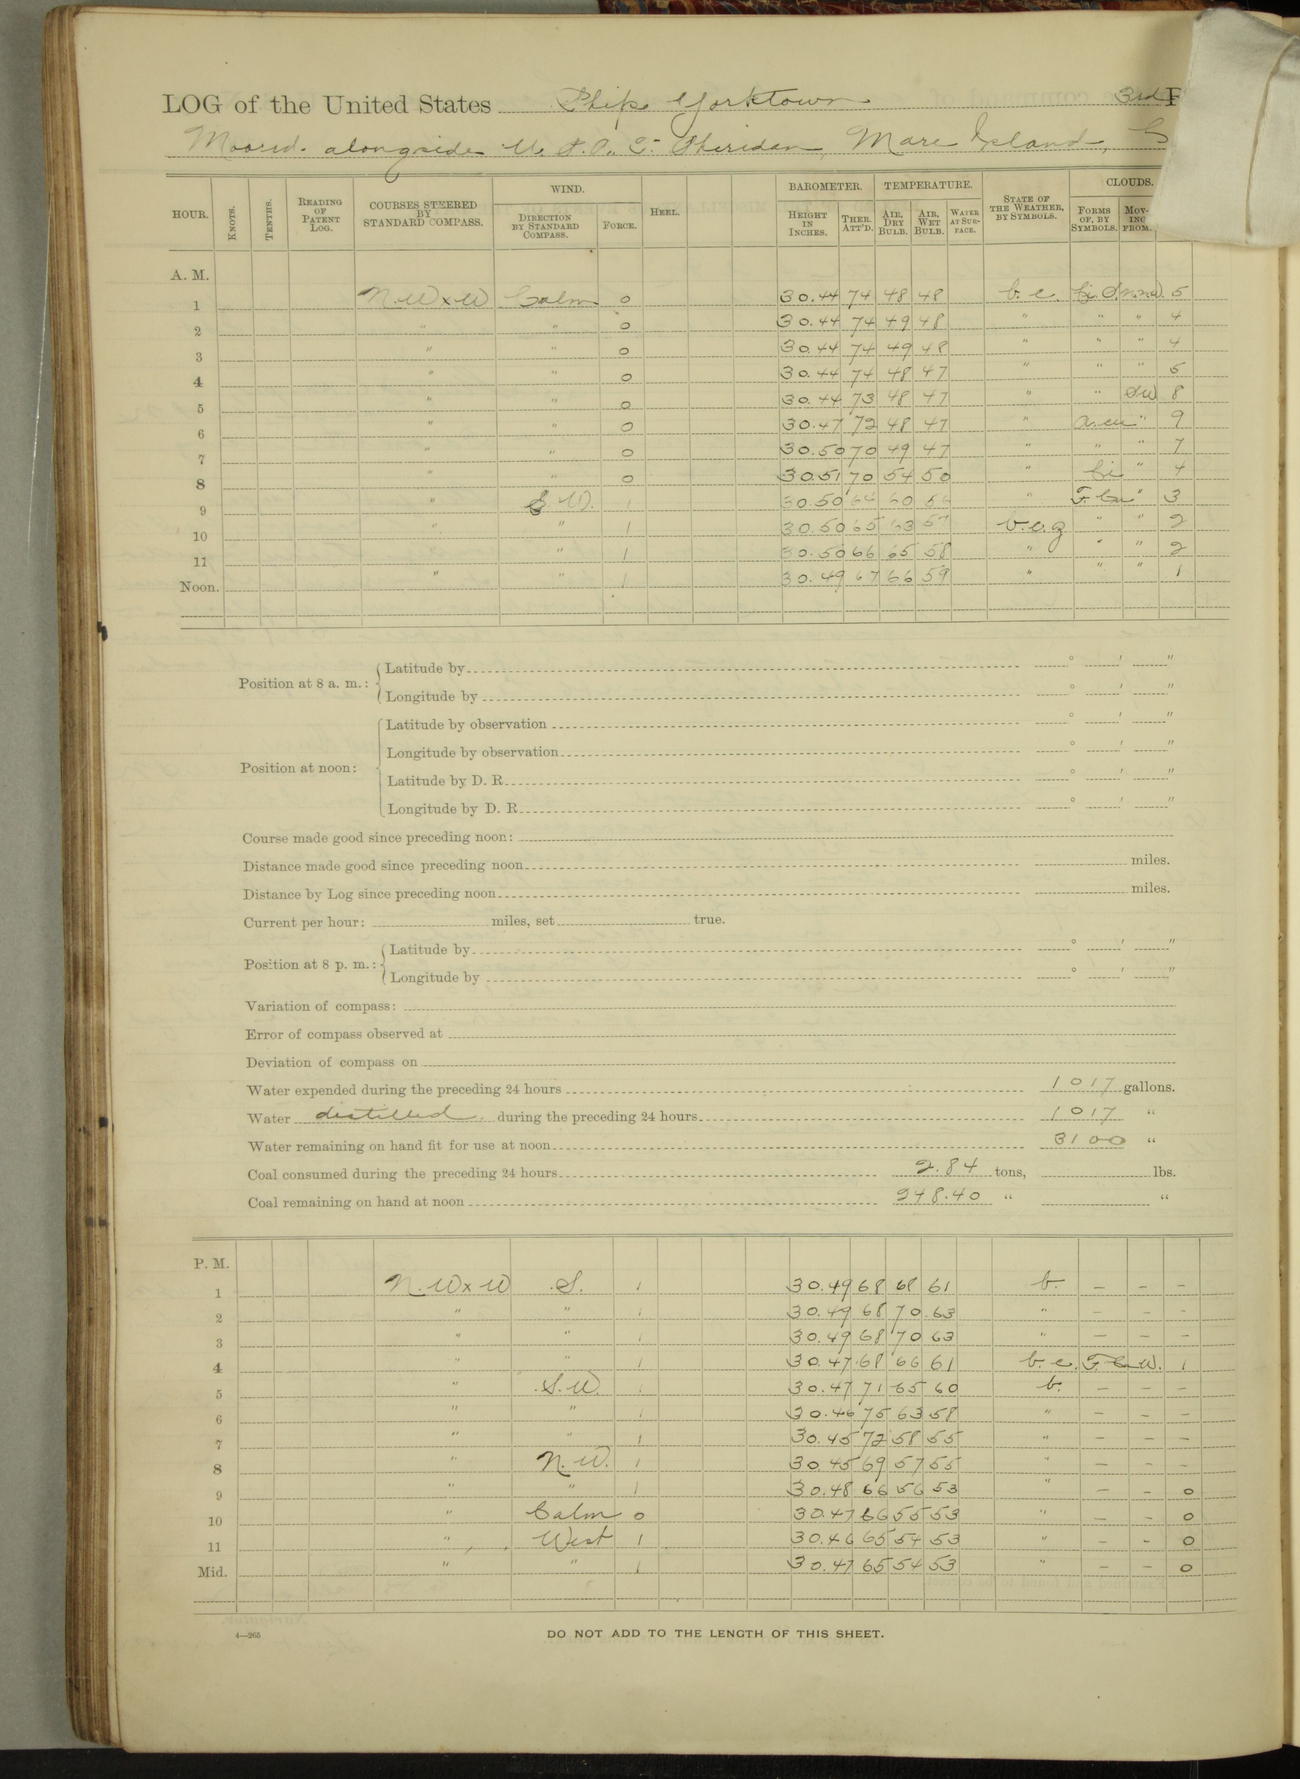 LOG of the United States Ships Yorktown 3rd
Moored alongside U.S.A.T. Sheridan, Mare Island,
HOUR. KNOTS. TENTHS. READING OF PATENT LOG. COURSES STEERED BY STANDARD COMPASS. WIND. DIRECTION BY STANDARD COMPASS. FORCE. HEEL. BAROMETER. HEIGHT IN INCHES. THER. ATT'D. TEMPERATURE. AIR, DRY BULB. AIR, WET BULB. WATER AT SURFACE. STATE OF THE WEATHER, BY SYMBOLS. CLOUDS. FORMS OF, BY SYMBOLS. MOVING FROM.
A. M.
1 N.W x W Calm 0 30.44 74 48 48 b.c. 5
2 " " 0 30.44 74 49 48 " " " 4
3 " " 0 30.44 74 49 48 " " " 4
4 " " 0 30.44 74 48 47 " " " 5
5 " " 0 30.44 73 48 47 " " SW 8
6 " " 0 30.47 72 48 47 " a.cu " 9
7 " " 0 30.50 70 49 47 " " " 7
8 " " 0 30.51 70 54 50 " Ci " 4
9 " S.W. 1 30.50 64 60 56 " F. Cu " 3
10 " " 1 30.50 65 63 57 b.c.g " " 2
11 " 1 30.50 66 65 58 " " " 2
Noon. " " 1 30.49 67 66 59 " " " 1
Position at 8 a. m.: Latitude by ° ' "
Longitude by ° ' "
Position at noon: Latitude by observation ° ' "
Longitude by observation ° ' "
Latitude by D. R. ° ' "
Longitude by D. R. ° ' "
Course made good since preceding noon:
Distance made good since preceding noon miles.
Distance by Log since preceding noon miles.
Current per hour: miles, set true.
Position at 8 p. m.: Latitude by ° ' "
Longitude by ° ' "
Variation of compass:
Error of compass observed at
Deviation of compass on
Water expended during the preceding 24 hours 1017 gallons.
Water distilled during the preceding 24 hours 1017 "
Water remaining on hand fit for use at noon 3100 "
Coal consumed during the preceding 24 hours 2.84 tons, lbs.
Coal remaining on hand at noon 248.40 " "
P. M.
1 N.W x W S. 1 30.49 68 68 61 b. – – –
2 " " 1 30.49 68 70 63 " – – –
3 " " 1 30.49 68 70 63 " – – –
4 " " 1 30.47 68 66 61 b.c. F. Cu W. 1
5 " S.W. 1 30.47 71 65 60 b. – – –
6 " " 1 30.46 75 63 58 " – – –
7 " " 1 30.45 72 58 55 " – – –
8 " N.W. 1 30.45 69 57 55 " – – –
9 " " 1 30.48 66 56 53 " – – 0
10 " Calm 0 30.47 66 55 53 " – – 0
11 " West 1 30.46 65 54 53 " – – 0
Mid. " " 1 30.47 65 54 53 " – – 0
4—265
DO NOT ADD TO THE LENGTH OF THIS SHEET.